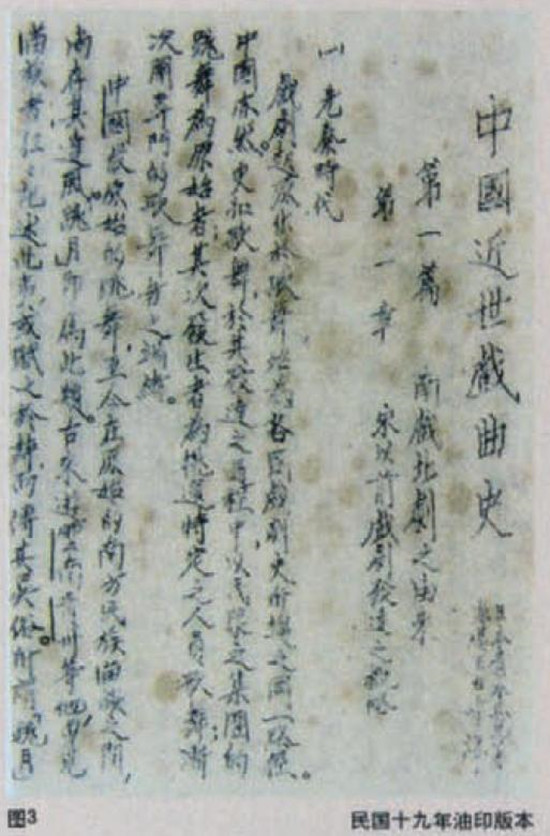 中國近世戲曲史
第一篇　南戲北劇之由來
第一章　宋以前戲劇發達之概略
一　先秦時代
戲劇起原於歌舞始為各民戲劇史所揆之同一路徑。
中國亦然。更和歌舞，於其發達之過程中，以民眾之集團的
跳舞為原始者；其次發生者為挑選特定之人員歌舞；漸
次開專門的歌舞者之端緒。
中國最原始的跳舞，至今在原始的南方民族苗族之間，
尚存其遺風，跳月即為此類。古來遊雲南貴州等地，目見
苗族者往々記述此事，或賦之於詩，而傳其異俗。所謂「跳月」
图3
民国十九年油印版本